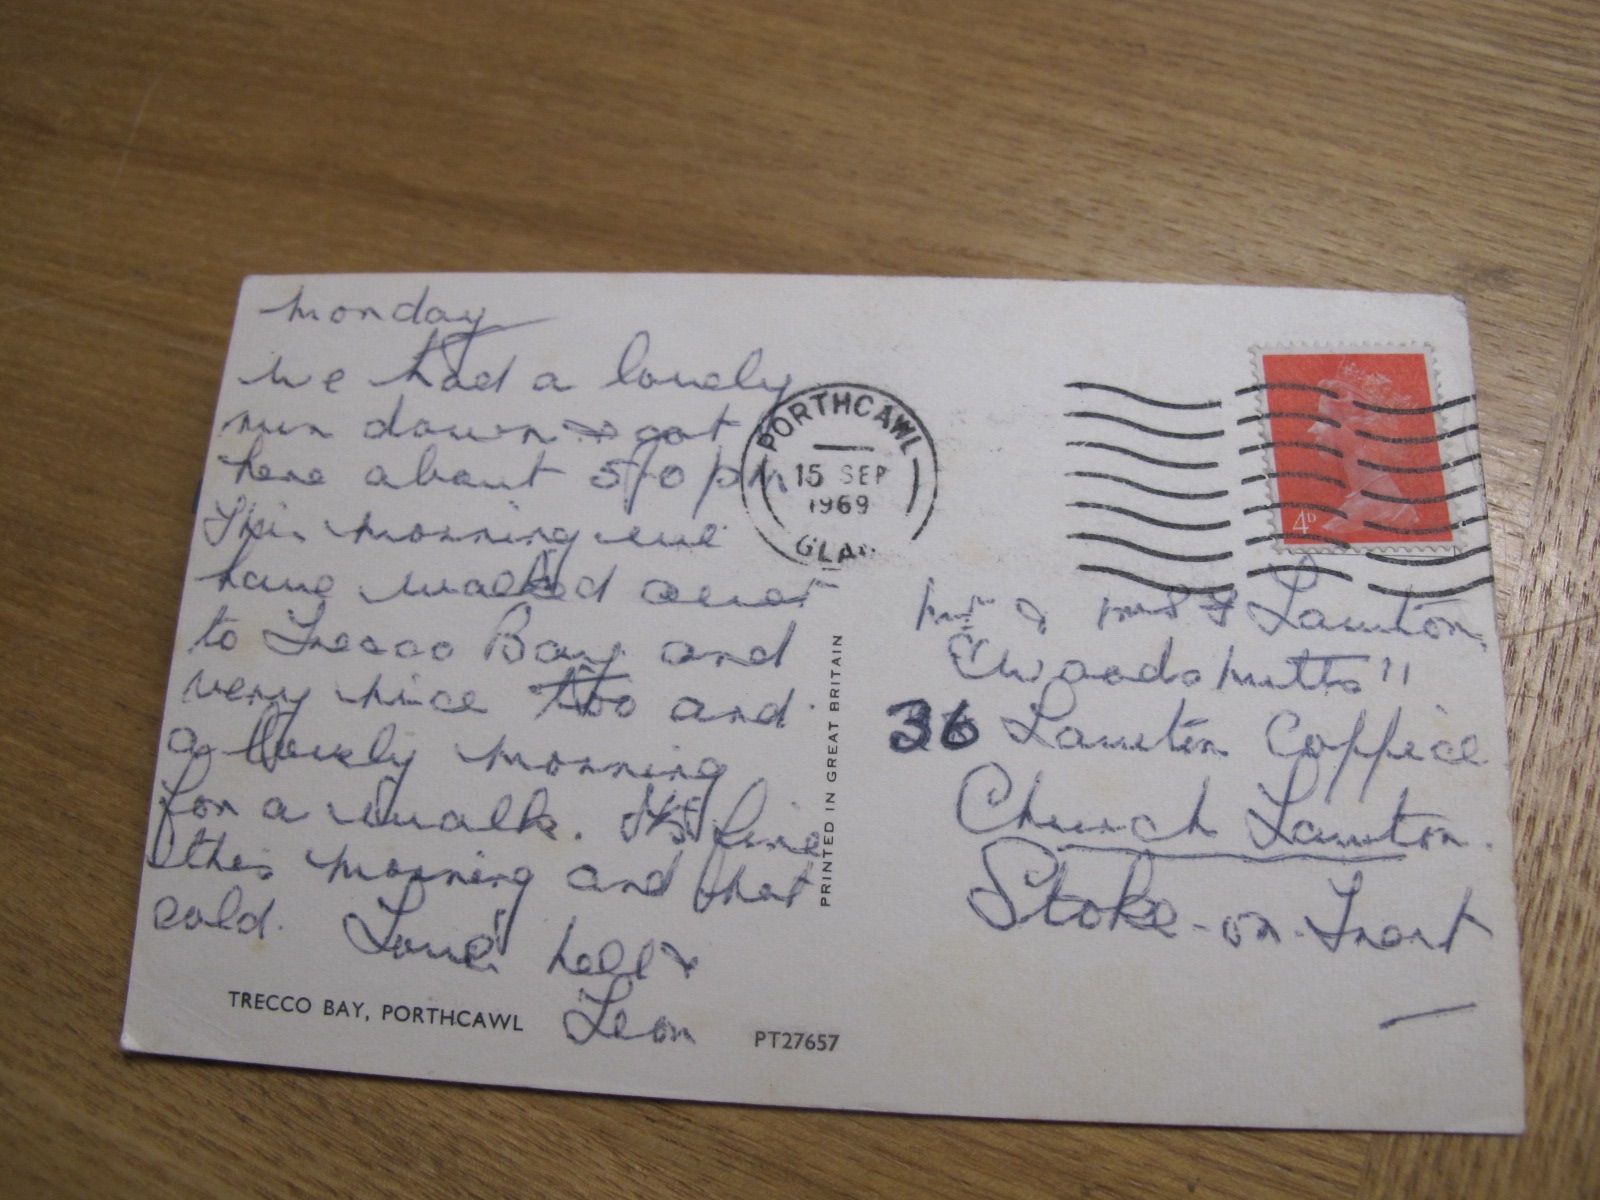 Monday
We had a lovely
run down & got
here about 5/0 pm
This morning we
have walked over
to Trecco Bay and
very nice too and
a lovely morning
for a walk. It's fine
this morning and not
cold. Love
Leon
TRECCO BAY, PORTHCAWL
PT27657
PRINTED IN GREAT BRITAIN
PORTHCAWL
15 SEP
1969
GLAM
4D
Mr & Mrs F Lawton
36 Lawton Coppice
Church Lawton.
Stoke-on-Trent